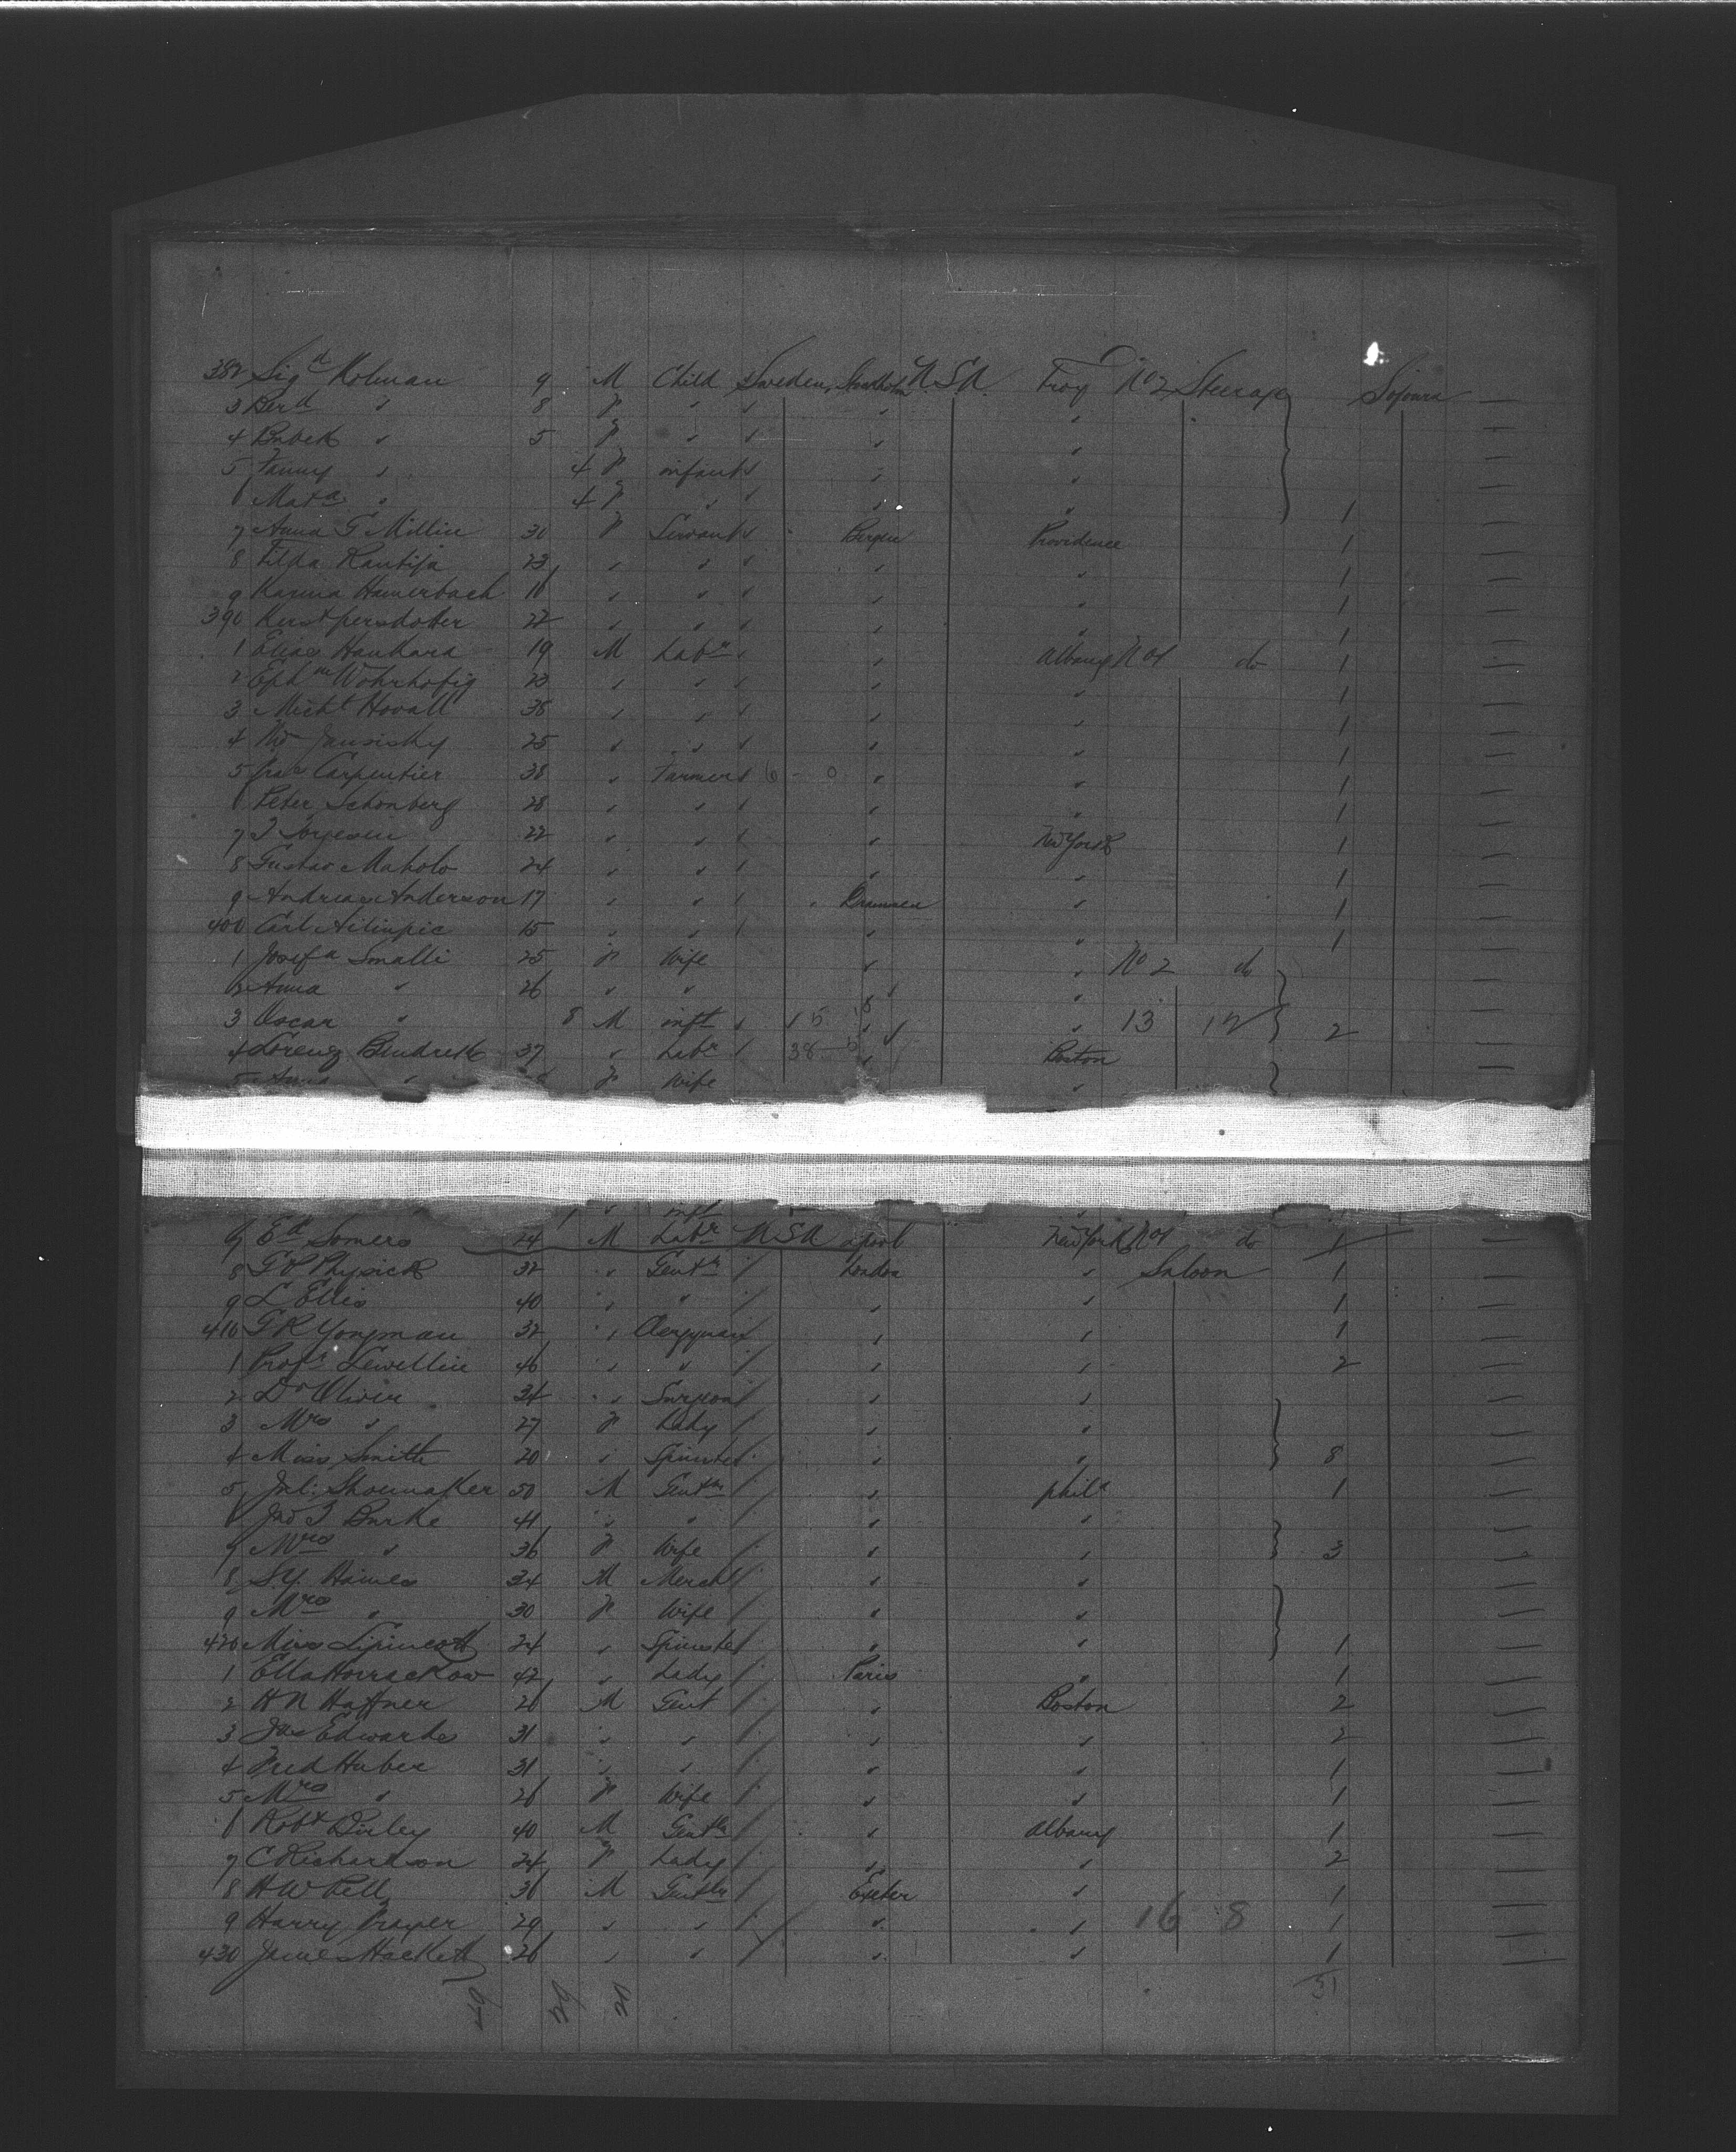 382 Sigd Kolman 9 M Child Sweden Stockholm U.S.A. Troy No 2 Steerage Sojourn —
3 Berd " 8 F " " " " —
4 Babek " 5 F " " " " —
5 Fanny " 4 F infant " " " —
6 Mata " 4 F " " " " 1 —
7 Anna G Millin 30 F Servant " Bergen Providence 1 —
8 Filda Rantija 23 " " " " " 1 —
9 Karina Hamerbach 16 " " " " " 1 —
390 Kerst persdotter 22 " " " " " 1 —
1 Elias Hankara 19 M Labr " " Albany No 1 do 1 —
2 Ephm Wohrhofig 23 " " " " " 1 —
3 Michl Hovall 38 " " " " " 1 —
4 Wm Jansisky 25 " " " " " 1 —
5 Carpentier 38 " Farmer " 6 - 0 " " 1 —
6 Peter Schonberg 28 " " " " " 1 —
7 J Soyesen 22 " " " " New York 1 —
8 Gustav Maholo 24 " " " " " 1 —
9 Andreas Anderson 17 " " " " Drammen " 1 —
400 Carl Ailinpic 15 " " " " " 1 —
1 Josefa Smalli 25 F Wife " " No 2 do —
2 Anna " 26 " " " " —
3 Oscar " 8 M inft " 15 18 " " 13 12 2 —
4 Lorenz Bendrett 37 " Labr " 38 5 " Boston —
5 Anna " F Wife "
inft
7 Ed Somers 24 M Labr U.S.A. Lpool New York No 1 do 1 —
8 G P Physick 32 " Gentn " London " Saloon 1 —
9 L Ellis 40 " " " " " 1 —
410 G R Yongman 32 " Clergyman " " " 1 —
1 Profr Lewellin 46 " " " " " 2 —
2 Dr Olivir 34 " Surgeon " " " —
3 Mrs " 27 F Lady " " " —
4 Miss Smith 20 " Spinster " " " 8 —
5 Jul: Shoumaker 50 M Gentn " " phila 1 —
6 Jno T Burke 41 " " " " " —
7 Mrs " 36 F Wife " " " 3 —
8 S.Y. Haines 34 M Mercht " " " —
9 Mrs " 30 F Wife " " " —
420 Miss Lipincott 24 " Spinster " " " 1 —
1 Ella Horrackow 42 " Lady " Paris " 1 —
2 H N Haffner 26 M Gent " " Boston 2 —
3 Jas Edwards 31 " " " " " 2 —
4 Fred Huber 31 " " " " " 1 —
5 Mrs " 26 F Wife " " " 1 —
6 Robt Dixley 40 M Gentn " " Albany 1 —
7 C Richardson 24 F Lady " " " 2 —
8 H W Pell 36 M Gentn " Exeter " 1 —
9 Harry Prayer 29 " " " " " 16 8 1 —
430 James Hackett 26 " " " " " 1 —
51